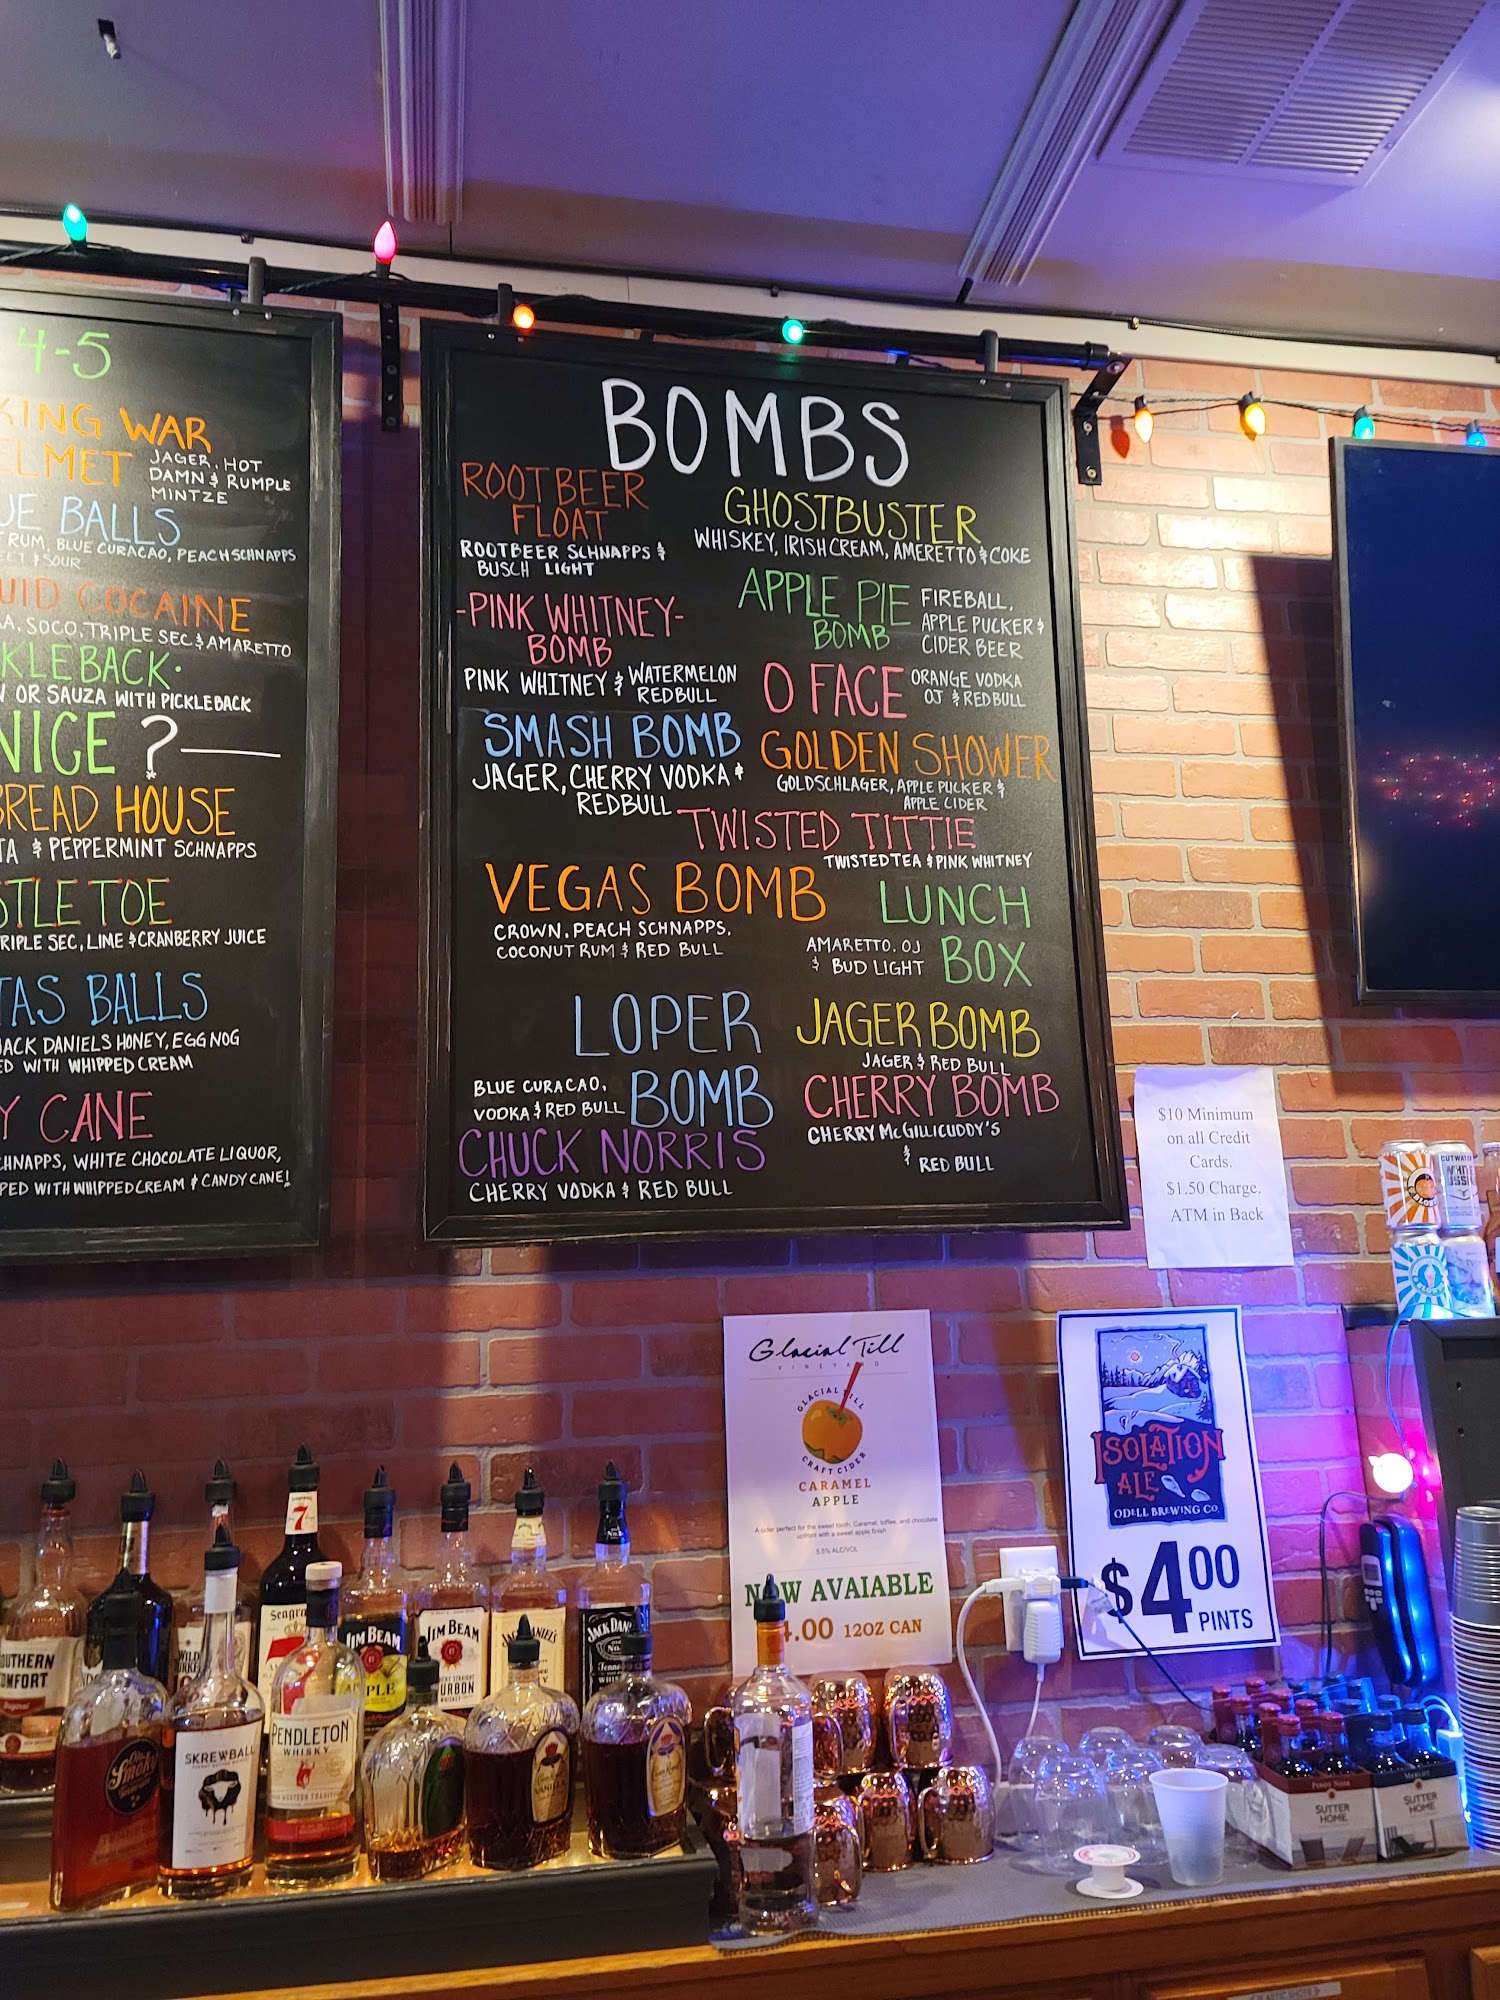 4-5
KING WAR
ELMET
JAGER, HOT
DAMN & RUMPLE
MINTZE
UE BALLS
RUM, BLUE CURACAO, PEACH SCHNAPPS
EET & SOUR
UID COCAINE
A, SOCO, TRIPLE SEC & AMARETTO
KLEBACK
OR SAUZA WITH PICKLEBACK
NICE ?
BREAD HOUSE
TA & PEPPERMINT SCHNAPPS
STLE TOE
RIPLE SEC, LIME & CRANBERRY JUICE
TAS BALLS
JACK DANIELS HONEY, EGG NOG
ED WITH WHIPPED CREAM
Y CANE
CHNAPPS, WHITE CHOCOLATE LIQUOR,
PED WITH WHIPPED CREAM & CANDY CANE!
BOMBS
ROOTBEER
FLOAT
ROOTBEER SCHNAPPS &
BUSCH LIGHT
-PINK WHITNEY-
BOMB
PINK WHITNEY & WATERMELON
REDBULL
SMASH BOMB
JAGER, CHERRY VODKA &
REDBULL
VEGAS BOMB
CROWN, PEACH SCHNAPPS,
COCONUT RUM & RED BULL
LOPER
BOMB
BLUE CURACAO,
VODKA & RED BULL
CHUCK NORRIS
CHERRY VODKA & RED BULL
GHOSTBUSTER
WHISKEY, IRISH CREAM, AMERETTO & COKE
APPLE PIE
BOMB
FIREBALL,
APPLE PUCKER &
CIDER BEER
O FACE
ORANGE VODKA
OJ & REDBULL
GOLDEN SHOWER
GOLDSCHLAGER, APPLE PUCKER &
APPLE CIDER
TWISTED TITTIE
TWISTED TEA & PINK WHITNEY
LUNCH
BOX
AMARETTO, OJ
& BUD LIGHT
JAGER BOMB
JAGER & RED BULL
CHERRY BOMB
CHERRY McGILLICUDDY'S
& RED BULL
$10 Minimum
on all Credit
Cards.
$1.50 Charge.
ATM in Back
Glacial Till
VINEYARD
GLACIAL TILL
CRAFT CIDER
CARAMEL
APPLE
A cider perfect for the sweet tooth. Caramel, toffee, and chocolate
upfront with a sweet apple finish
5.5% ALC/VOL
NOW AVAIABLE
4.00 12OZ CAN
ISOLATION
ALE
ODELL BREWING CO.
$4.00
PINTS
CUTWATER
7
Seagra
OUTHERN
OMFORT
WILD
JIM BEAM
APPLE
JIM BEAM
BOURBON
JACK DANIEL'S
JACK DAN
Tenne
Ole
Smoky
SKREWBALL
PENDLETON
WHISKY
VANILLA
PINOT NOIR
SUTTER
HOME
MERLOT
SUTTER
HOME